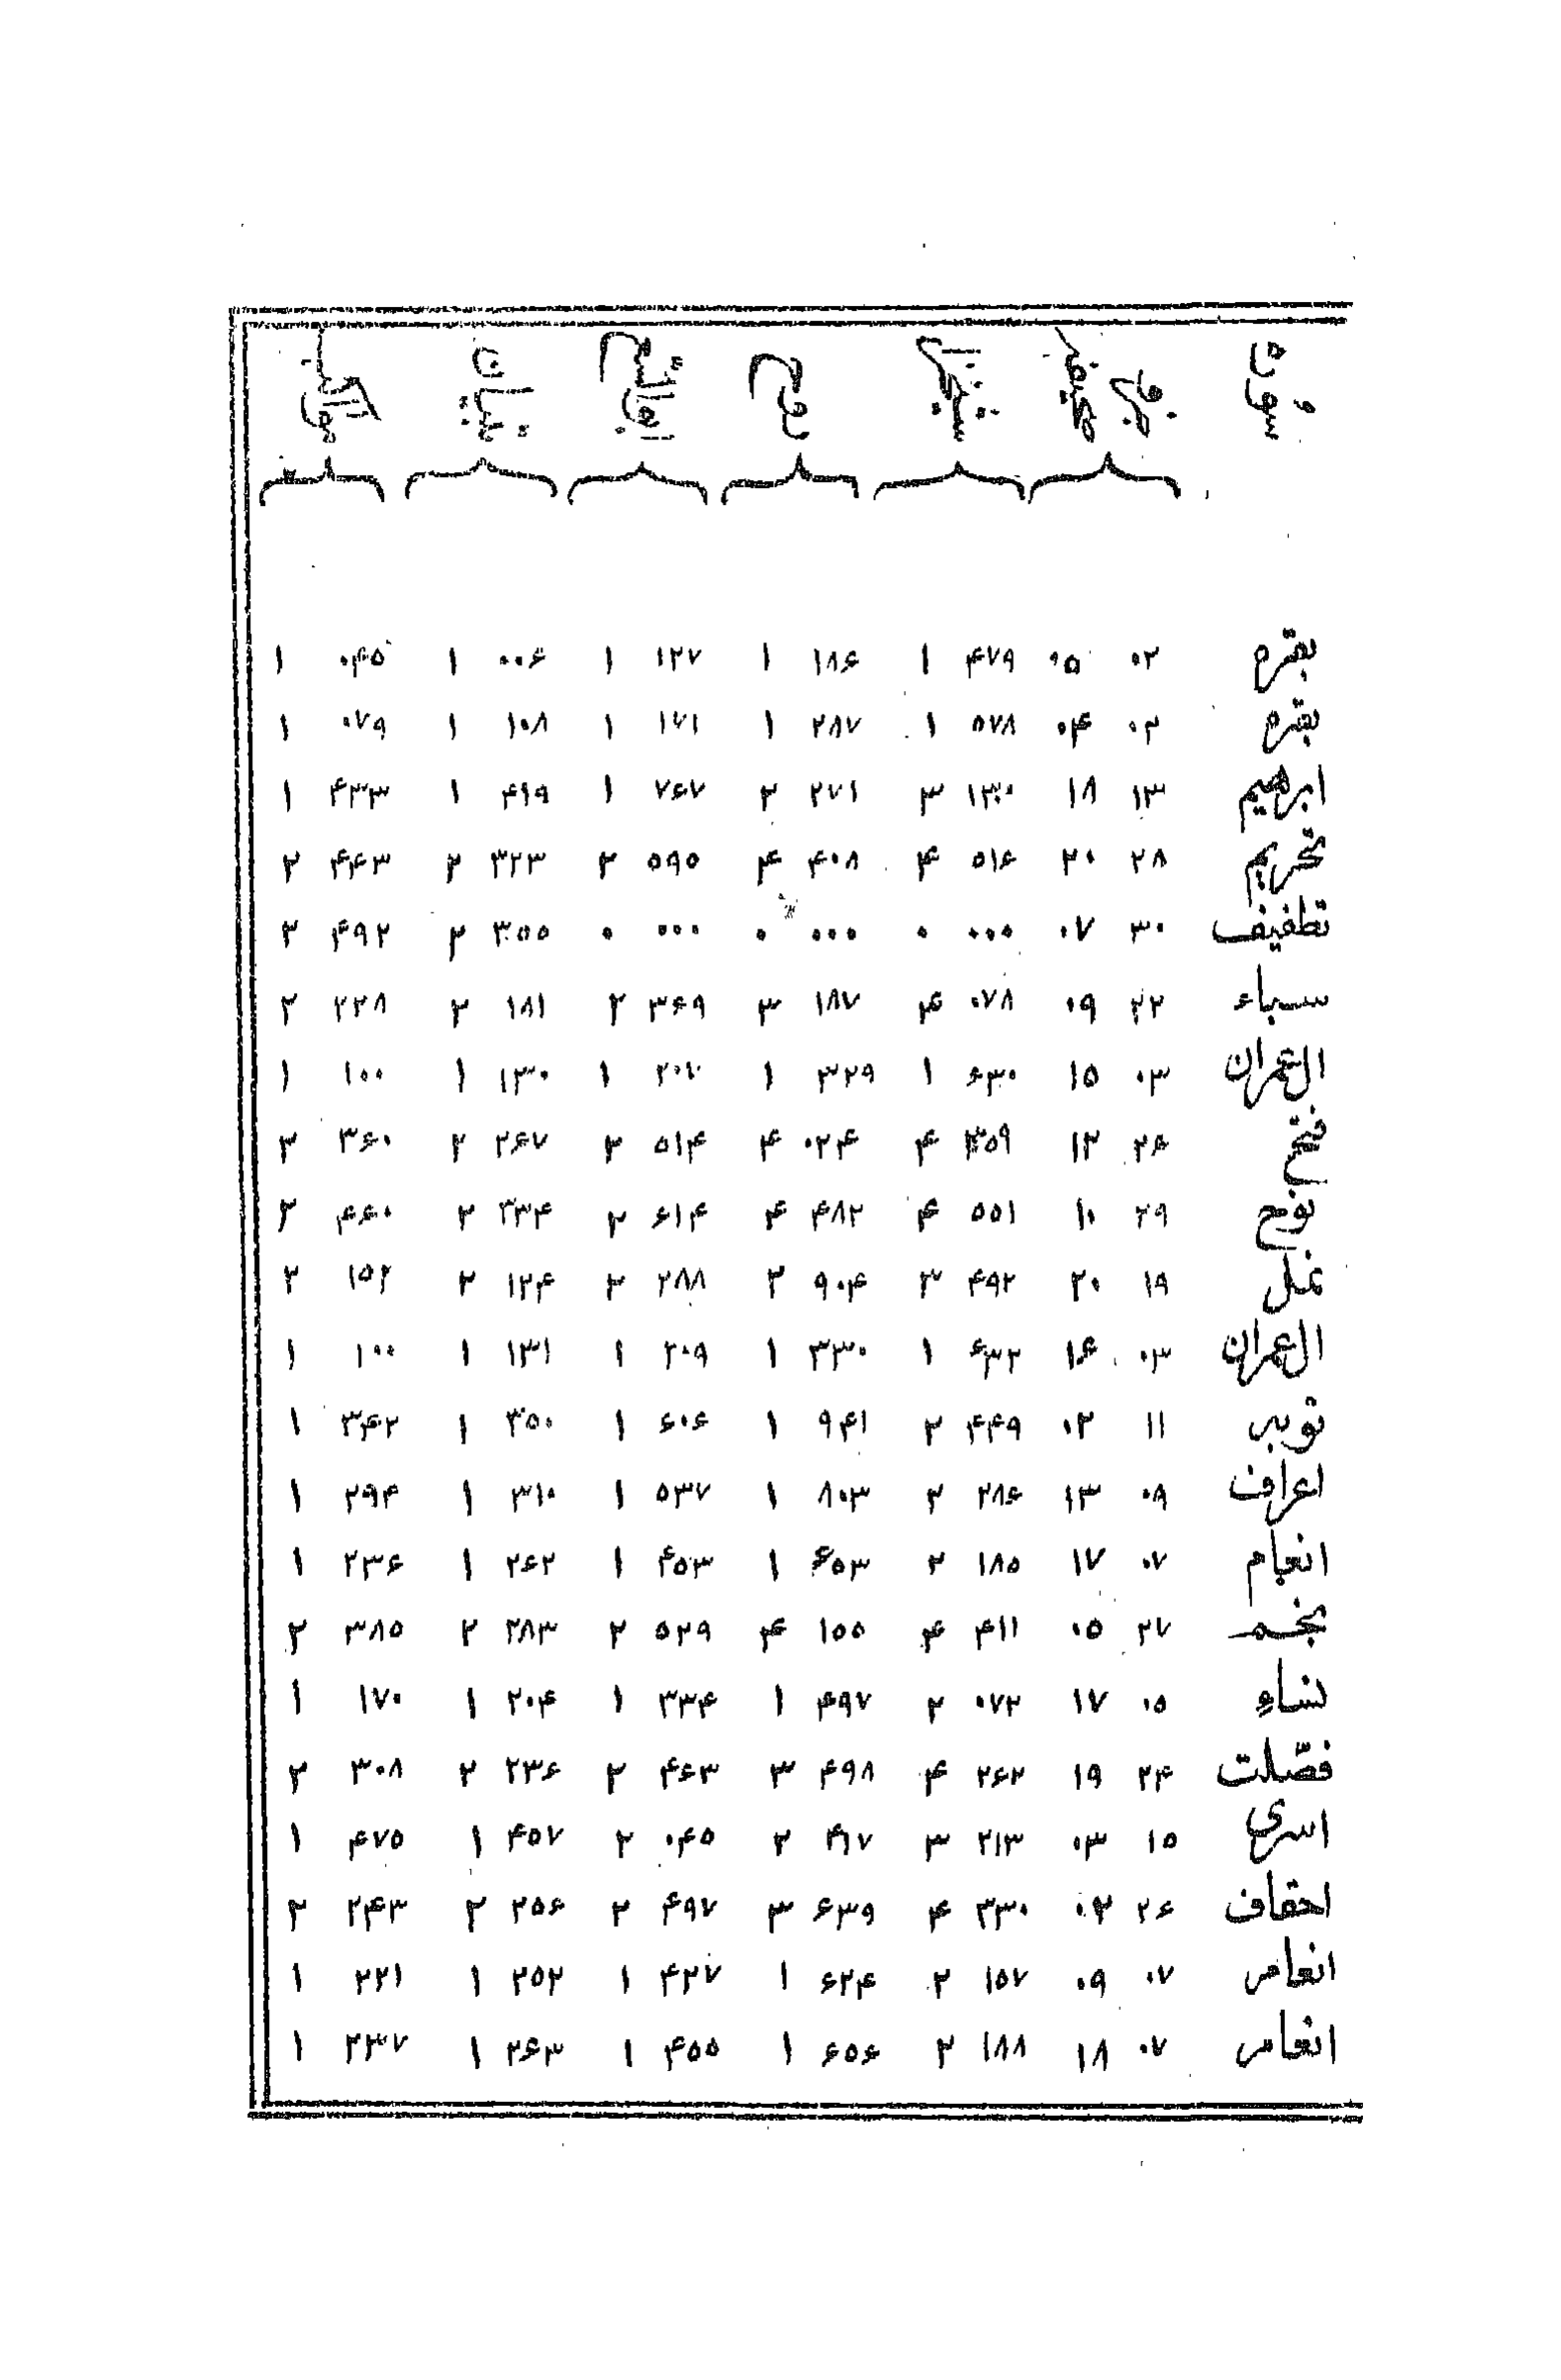 بقره ۰۲ ۰۵ ۴۷۹ ۱ ۱۸۶ ۱ ۱۲۷ ۱ ۰۰۶ ۱ ۰۴۵ ۱
بقره ۰۲ ۰۴ ۵۷۸ ۱ ۲۸۷ ۱ ۱۷۱ ۱ ۱۰۸ ۱ ۰۷۹ ۱
ابرهیم ۱۳ ۱۸ ۱۳۰ ۳ ۲۷۱ ۲ ۷۶۷ ۱ ۴۱۹ ۱ ۴۳۳ ۱
تحریم ۲۸ ۲۰ ۵۱۶ ۴ ۴۰۸ ۴ ۵۹۵ ۲ ۳۲۳ ۲ ۴۴۳ ۲
تطفیف ۳۰ ۰۷ ۰۰۰ ۰ ۰۰۰ ۰ ۰۰۰ ۰ ۳۵۵ ۲ ۴۹۲ ۲
سباء ۲۲ ۰۹ ۰۷۸ ۴ ۱۸۷ ۳ ۳۶۹ ۲ ۱۸۱ ۲ ۲۲۸ ۲
ال عمران ۰۳ ۱۵ ۶۳۰ ۱ ۳۲۹ ۱ ۲۰۷ ۱ ۱۳۰ ۱ ۱۰۰ ۱
فتح ۲۶ ۱۲ ۳۵۹ ۴ ۰۲۴ ۴ ۵۱۴ ۲ ۲۶۷ ۲ ۳۶۰ ۲
نوح ۲۹ ۱۰ ۵۵۱ ۴ ۴۸۲ ۴ ۶۱۴ ۲ ۳۳۴ ۲ ۴۶۰ ۲
نمل ۱۹ ۲۰ ۴۹۲ ۳ ۹۰۴ ۲ ۲۸۸ ۲ ۱۲۴ ۲ ۱۵۲ ۲
ال عمران ۰۳ ۱۶ ۶۳۲ ۱ ۳۳۰ ۱ ۲۰۹ ۱ ۱۳۱ ۱ ۱۰۰ ۱
توبه ۱۱ ۰۲ ۴۴۹ ۲ ۹۴۱ ۱ ۶۰۶ ۱ ۳۵۰ ۱ ۳۴۲ ۱
اعراف ۰۸ ۱۳ ۲۸۶ ۲ ۸۰۳ ۱ ۵۳۷ ۱ ۳۱۰ ۱ ۲۹۴ ۱
انعام ۰۷ ۱۷ ۱۸۵ ۲ ۶۵۳ ۱ ۴۵۳ ۱ ۲۶۲ ۱ ۲۳۶ ۱
نجم ۲۷ ۰۵ ۴۱۱ ۴ ۱۵۵ ۴ ۵۲۹ ۲ ۲۸۳ ۲ ۳۸۵ ۲
نساء ۰۵ ۱۷ ۰۷۲ ۲ ۴۹۷ ۱ ۳۳۴ ۱ ۲۰۴ ۱ ۱۷۰ ۱
فصّلت ۲۴ ۱۹ ۲۶۲ ۴ ۴۹۸ ۳ ۴۶۳ ۲ ۲۳۶ ۲ ۳۰۸ ۲
اسری ۱۵ ۰۳ ۲۱۳ ۳ ۴۱۷ ۲ ۰۴۵ ۲ ۴۵۷ ۱ ۴۷۵ ۱
احقاف ۲۶ ۰۲ ۳۳۰ ۴ ۶۳۹ ۳ ۴۹۷ ۲ ۲۵۶ ۲ ۲۴۳ ۲
انعام ۰۷ ۰۹ ۱۵۷ ۲ ۶۲۴ ۱ ۴۲۷ ۱ ۲۵۲ ۱ ۲۲۱ ۱
انعام ۰۷ ۱۸ ۱۸۸ ۲ ۶۵۶ ۱ ۴۵۵ ۱ ۲۶۳ ۱ ۲۳۷ ۱